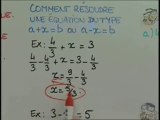 COMMENT RESOUDRE
UNE EQUATION DU TYPE
a+x=b ou a-x=b
Ex: 4/3 + x = 3
4/3 - 4/3 + x = 3 - 4/3
x = 9/3 - 4/3
x = 5/3
Ex: 3- = 5